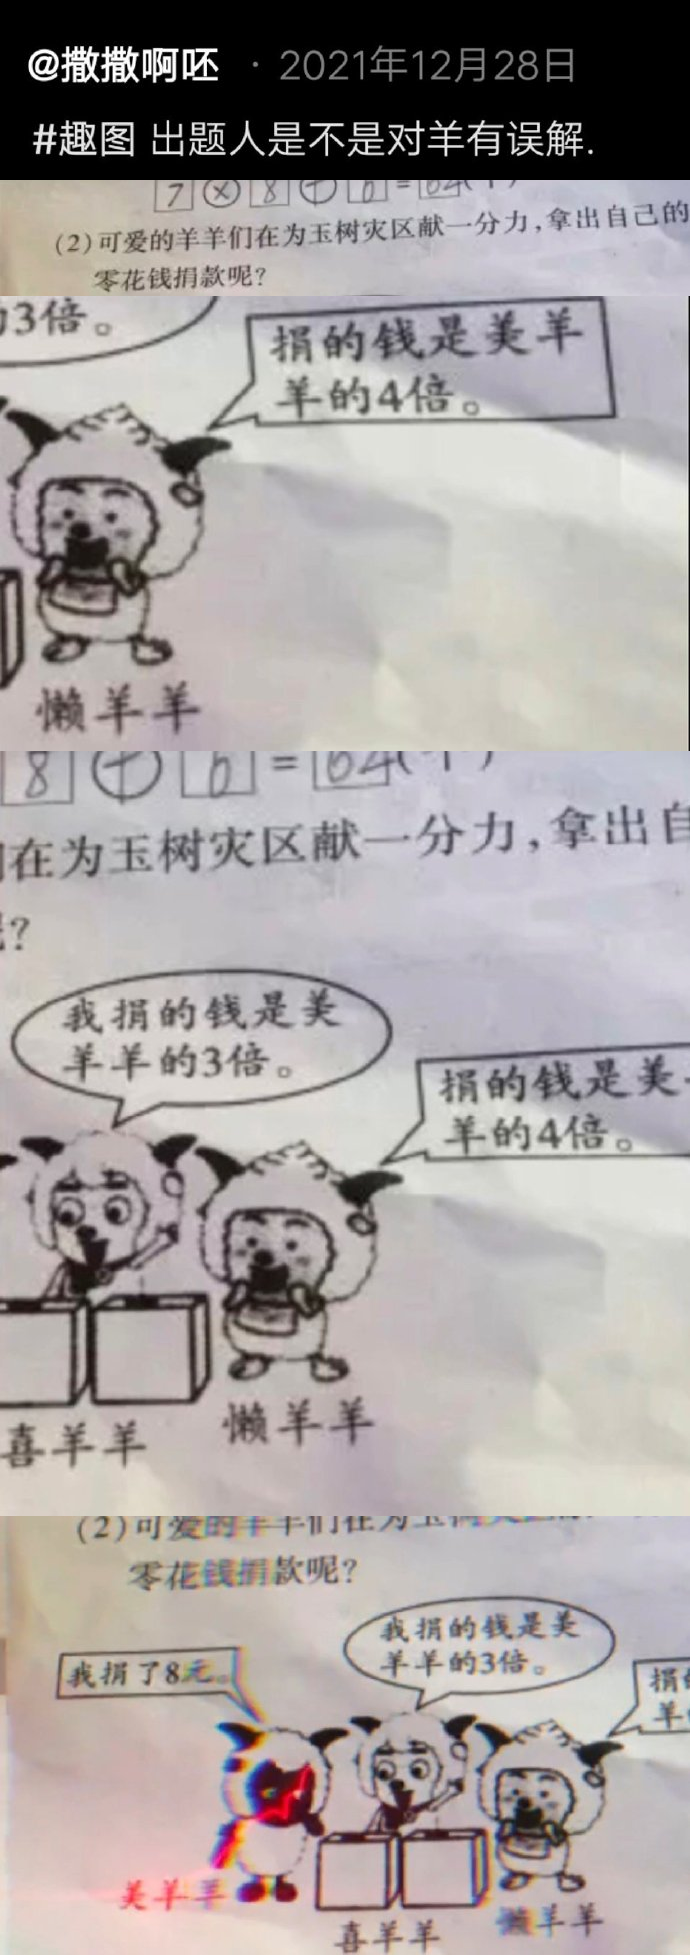 @撒撒啊呸 · 2021年12月28日
#趣图 出题人是不是对羊有误解.
7×8+6=64(个)
(2)可爱的羊羊们在为玉树灾区献一分力,拿出自己的
零花钱捐款呢?
的3倍。
捐的钱是美羊
羊的4倍。
懒羊羊
8+6=64(个)
们在为玉树灾区献一分力,拿出自
呢?
我捐的钱是美
羊羊的3倍。
捐的钱是美
羊的4倍。
喜羊羊
懒羊羊
(2)可爱的羊羊们在为玉树灾区
零花钱捐款呢?
我捐的钱是美
羊羊的3倍。
我捐了8元。
捐的
羊的
美羊羊
喜羊羊
懒羊羊